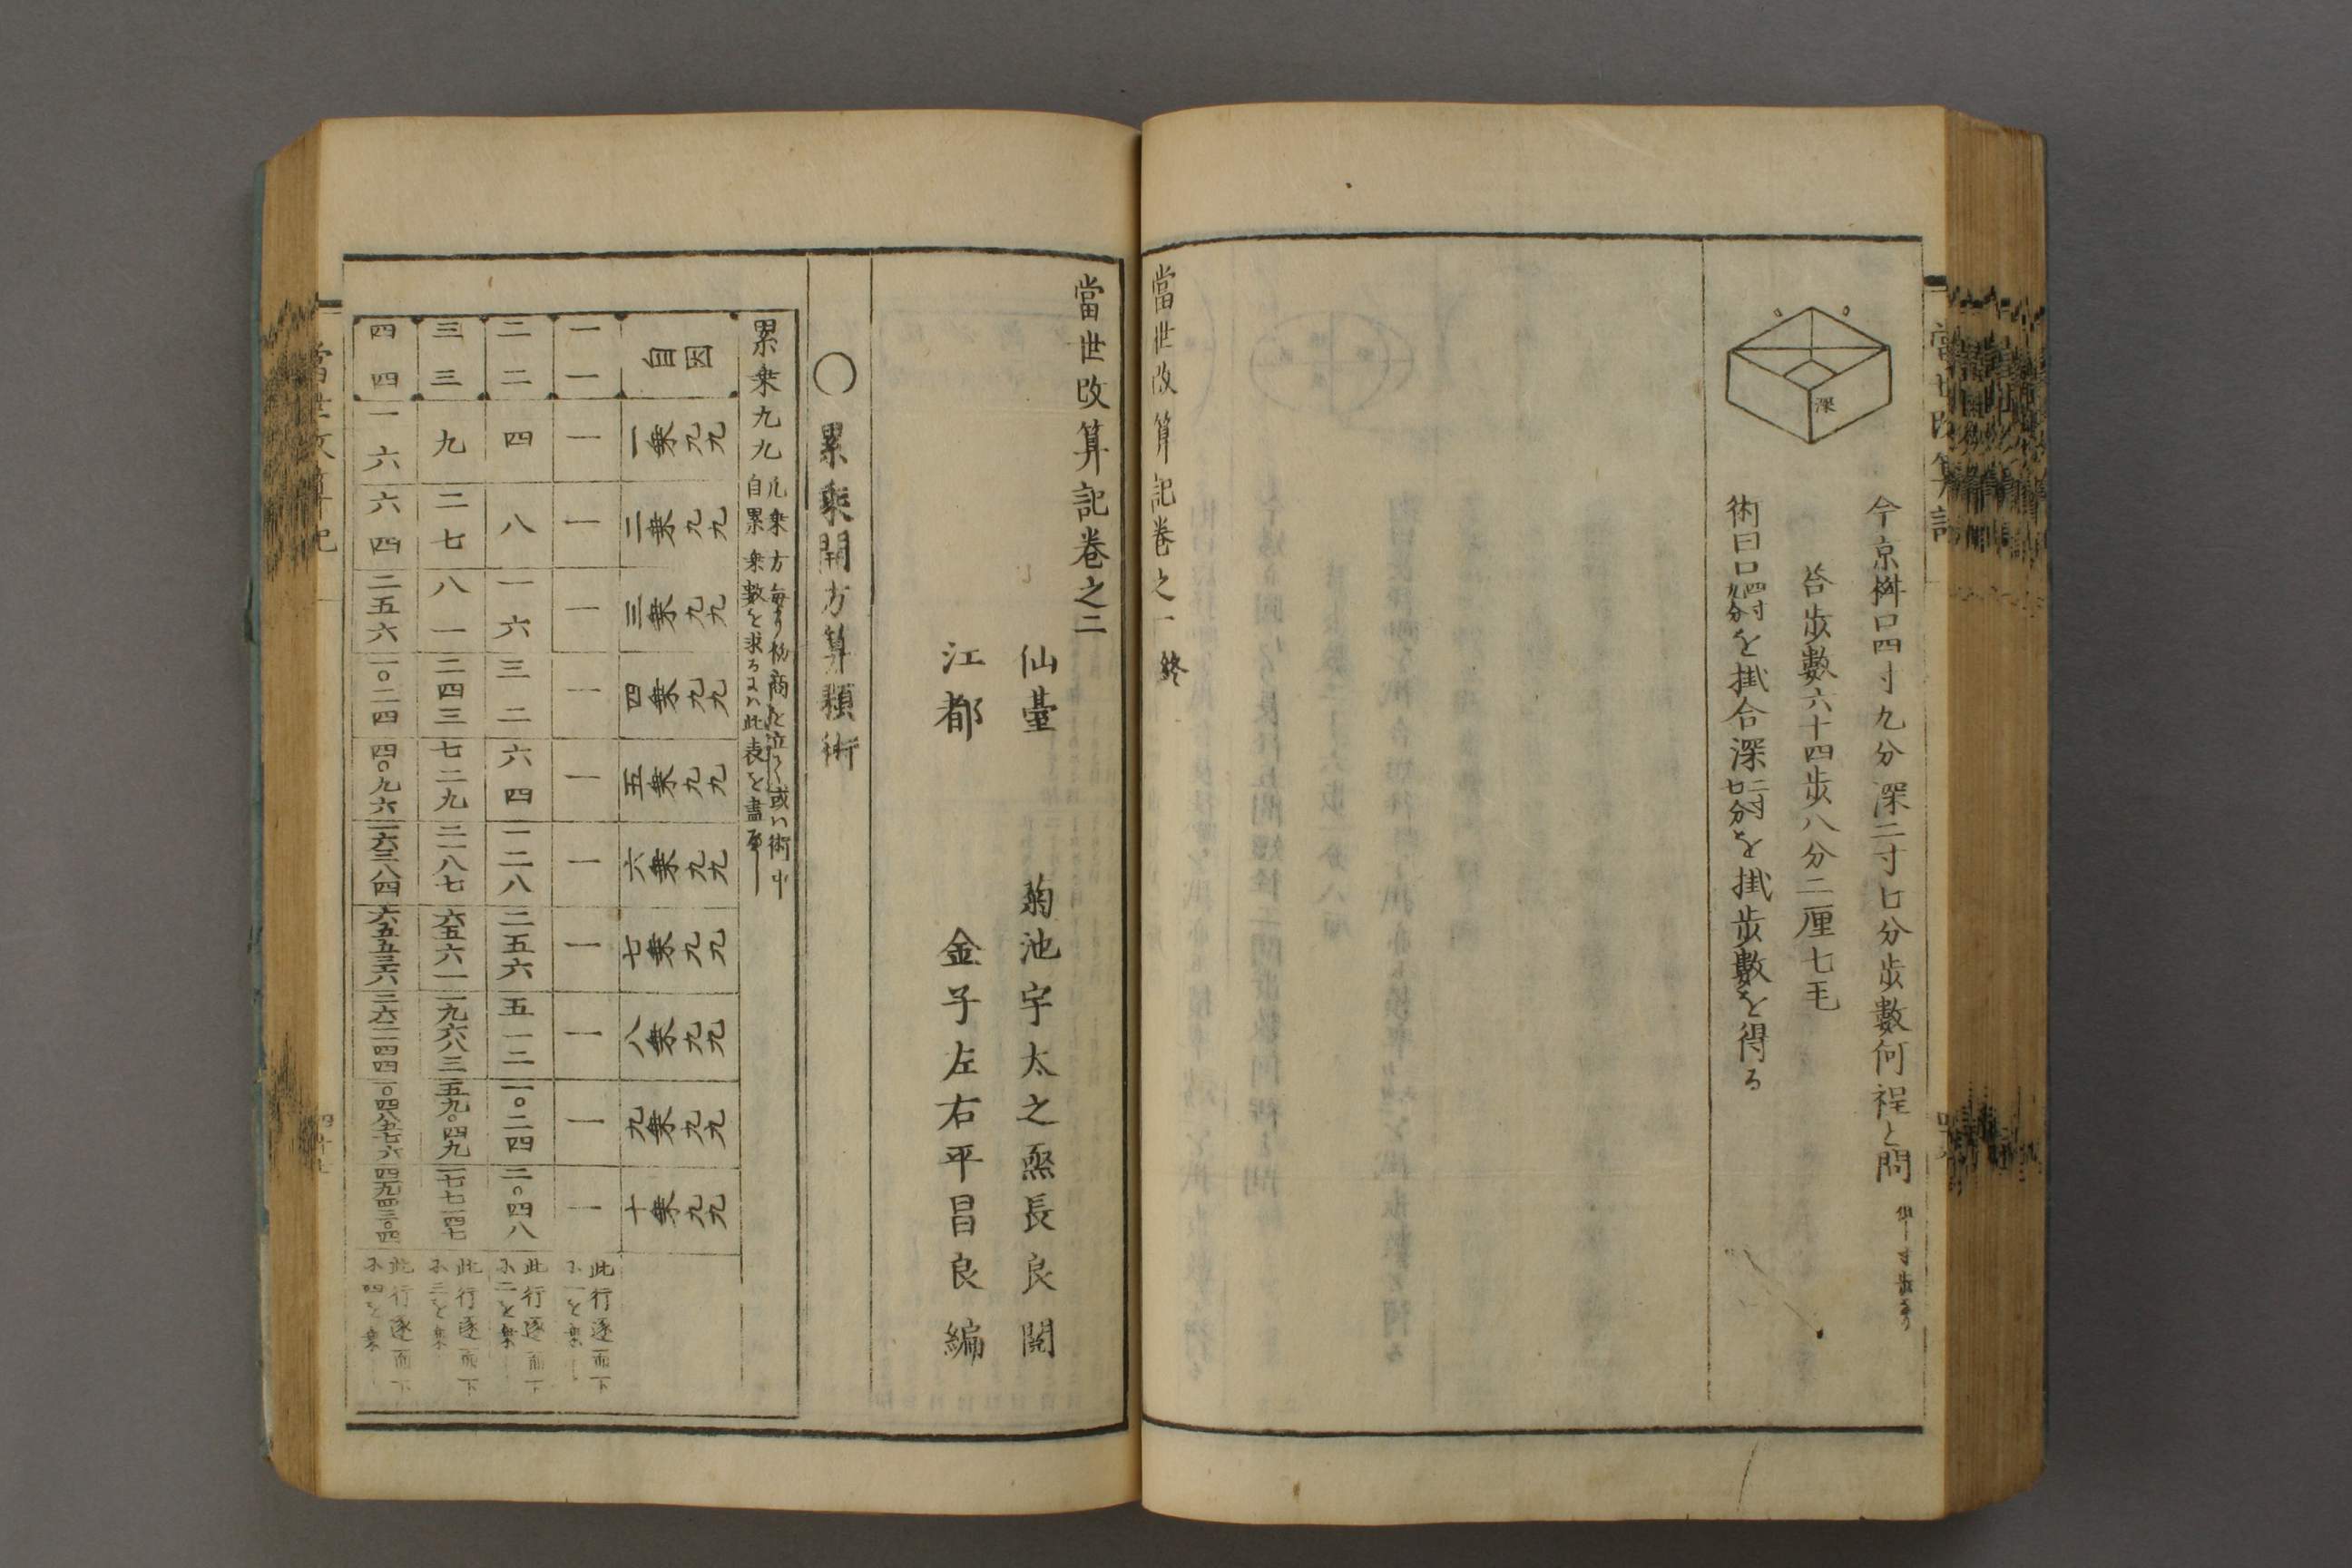 深
今京桝口四寸九分深二寸七分歩數何程と問
荅歩數六十四歩八分二厘七毛
術曰口四寸九分を掛合深二寸七分を掛歩數を得る
當世改算記卷之一終
當世改算記卷之二
仙臺 菊池宇太之烝長良閲
江都 金子左右平昌良編
〇累乘開方算顆術
累乗九九
自因 一乗九九 二乗九九 三乗九九 四乗九九 五乗九九 六乗九九 七乗九九 八乗九九 九乗九九 十乗九九
一一 一 一 一 一 一 一 一 一 一 一 此行逐而下
二二 四 八 一六 三二 六四 一二八 二五六 五一二 一〇二四 二〇四八 此行逐而下に二を乗
三三 九 二七 八一 二四三 七二九 二一八七 六五六一 一九六八三 五九〇四九 一七七一四七 此行逐而下に三を乗
四四 一六 六四 二五六 一〇二四 四〇九六 一六三八四 六五五三六 二六二一四四 一〇四八五七六 四一九四三〇四 此行逐而下に四を乗